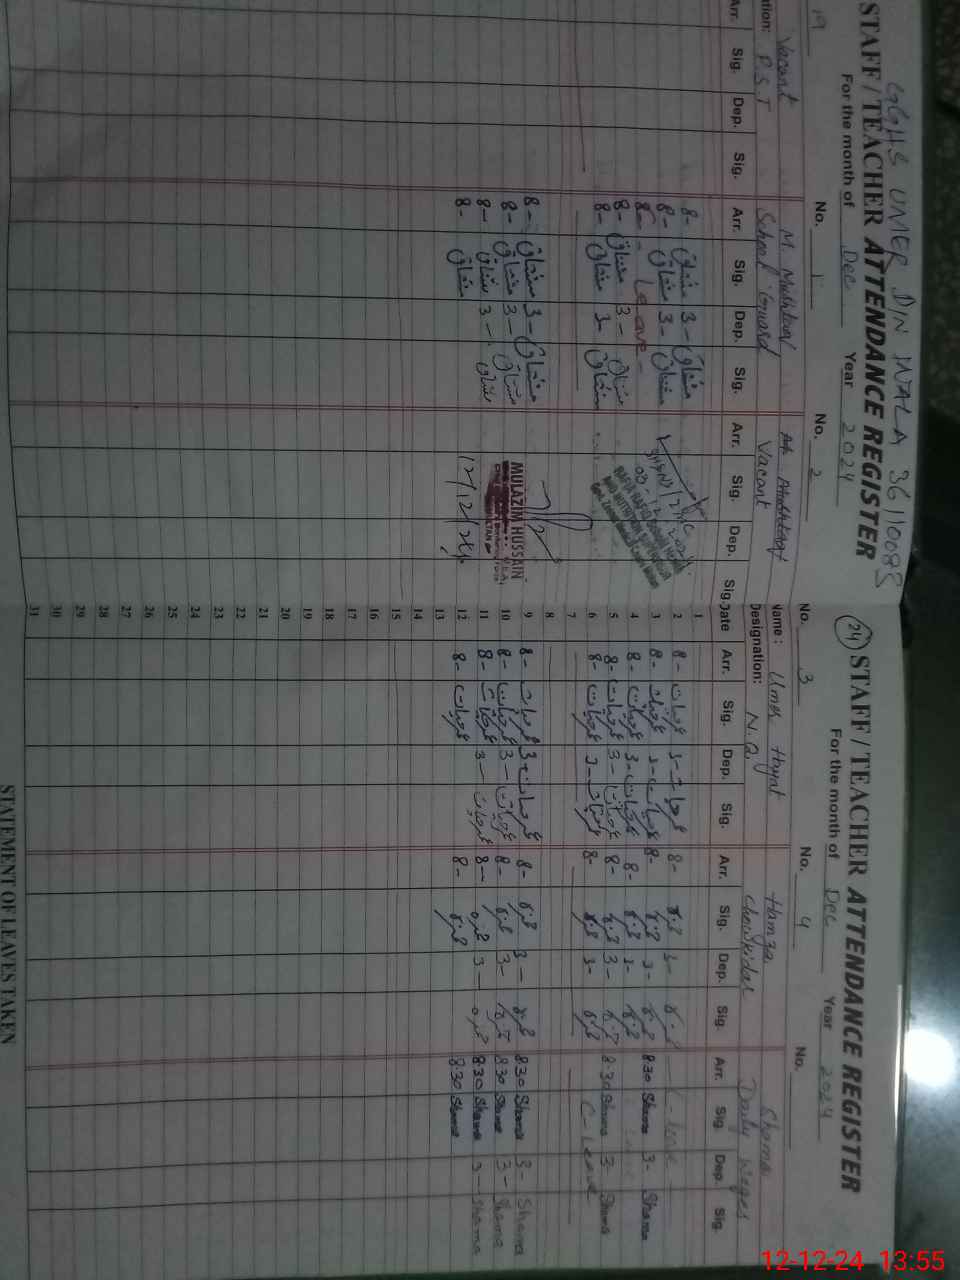 GGHS UMER DIN WALA 36110083
STAFF / TEACHER ATTENDANCE REGISTER
For the month of Dec Year 2024
19 No. 1 No. 2
Vacant M. Mushtaq
P.S.T School Guard Vacant
Arr. Sig. Dep. Sig. Arr. Sig. Dep. Sig. Arr. Sig. Dep. Sig.
8- مشتاق 3- مشتاق
8- مشتاق 3- مشتاق
8- Leave -
8- مشتاق 3- مشتاق
8- مشتاق 3- مشتاق
8- مشتاق 3- مشتاق
8- مشتاق 3- مشتاق
8- مشتاق 3- مشتاق
8- مشتاق
03-12-2024
RAFIA RAFIQ
MULAZIM HUSSAIN
12/12/24
24 STAFF / TEACHER ATTENDANCE REGISTER
For the month of Dec Year 2024
No. 3 No. 4 No.
Name: Umer Hayat Hamza Shama
Designation: N.Q. Chowkidar Daily Wages
Date Arr. Sig. Dep. Sig. Arr. Sig. Dep. Sig. Arr. Sig. Dep. Sig.
1
2 8- عمرحیات 3- عمرحیات 8- حمزہ 3- حمزہ
3 8- عمرحیات 3- عمرحیات 8- حمزہ 3- حمزہ 8:30 Shama 3- Shama
4 8- عمرحیات 3- عمرحیات 8- حمزہ 3- حمزہ
5 8- عمرحیات 3- عمرحیات 8- حمزہ 3- حمزہ 8:30 Shama 3- Shama
6 8- عمرحیات 3- عمرحیات 8- حمزہ 3- حمزہ C-Leave
7
8
9 8- عمرحیات 3- عمرحیات 8- حمزہ 3- حمزہ 8:30 Shama 3- Shama
10 8- عمرحیات 3- عمرحیات 8- حمزہ 3- حمزہ 8:30 Shama 3- Shama
11 8- عمرحیات 3- عمرحیات 8- حمزہ 3- حمزہ 8:30 Shama 3- Shama
12 8- عمرحیات 8- حمزہ 8:30 Shama
13
14
15
16
17
18
19
20
21
22
23
24
25
26
27
28
29
30
31
STATEMENT OF LEAVES TAKEN
12-12-24 13:55